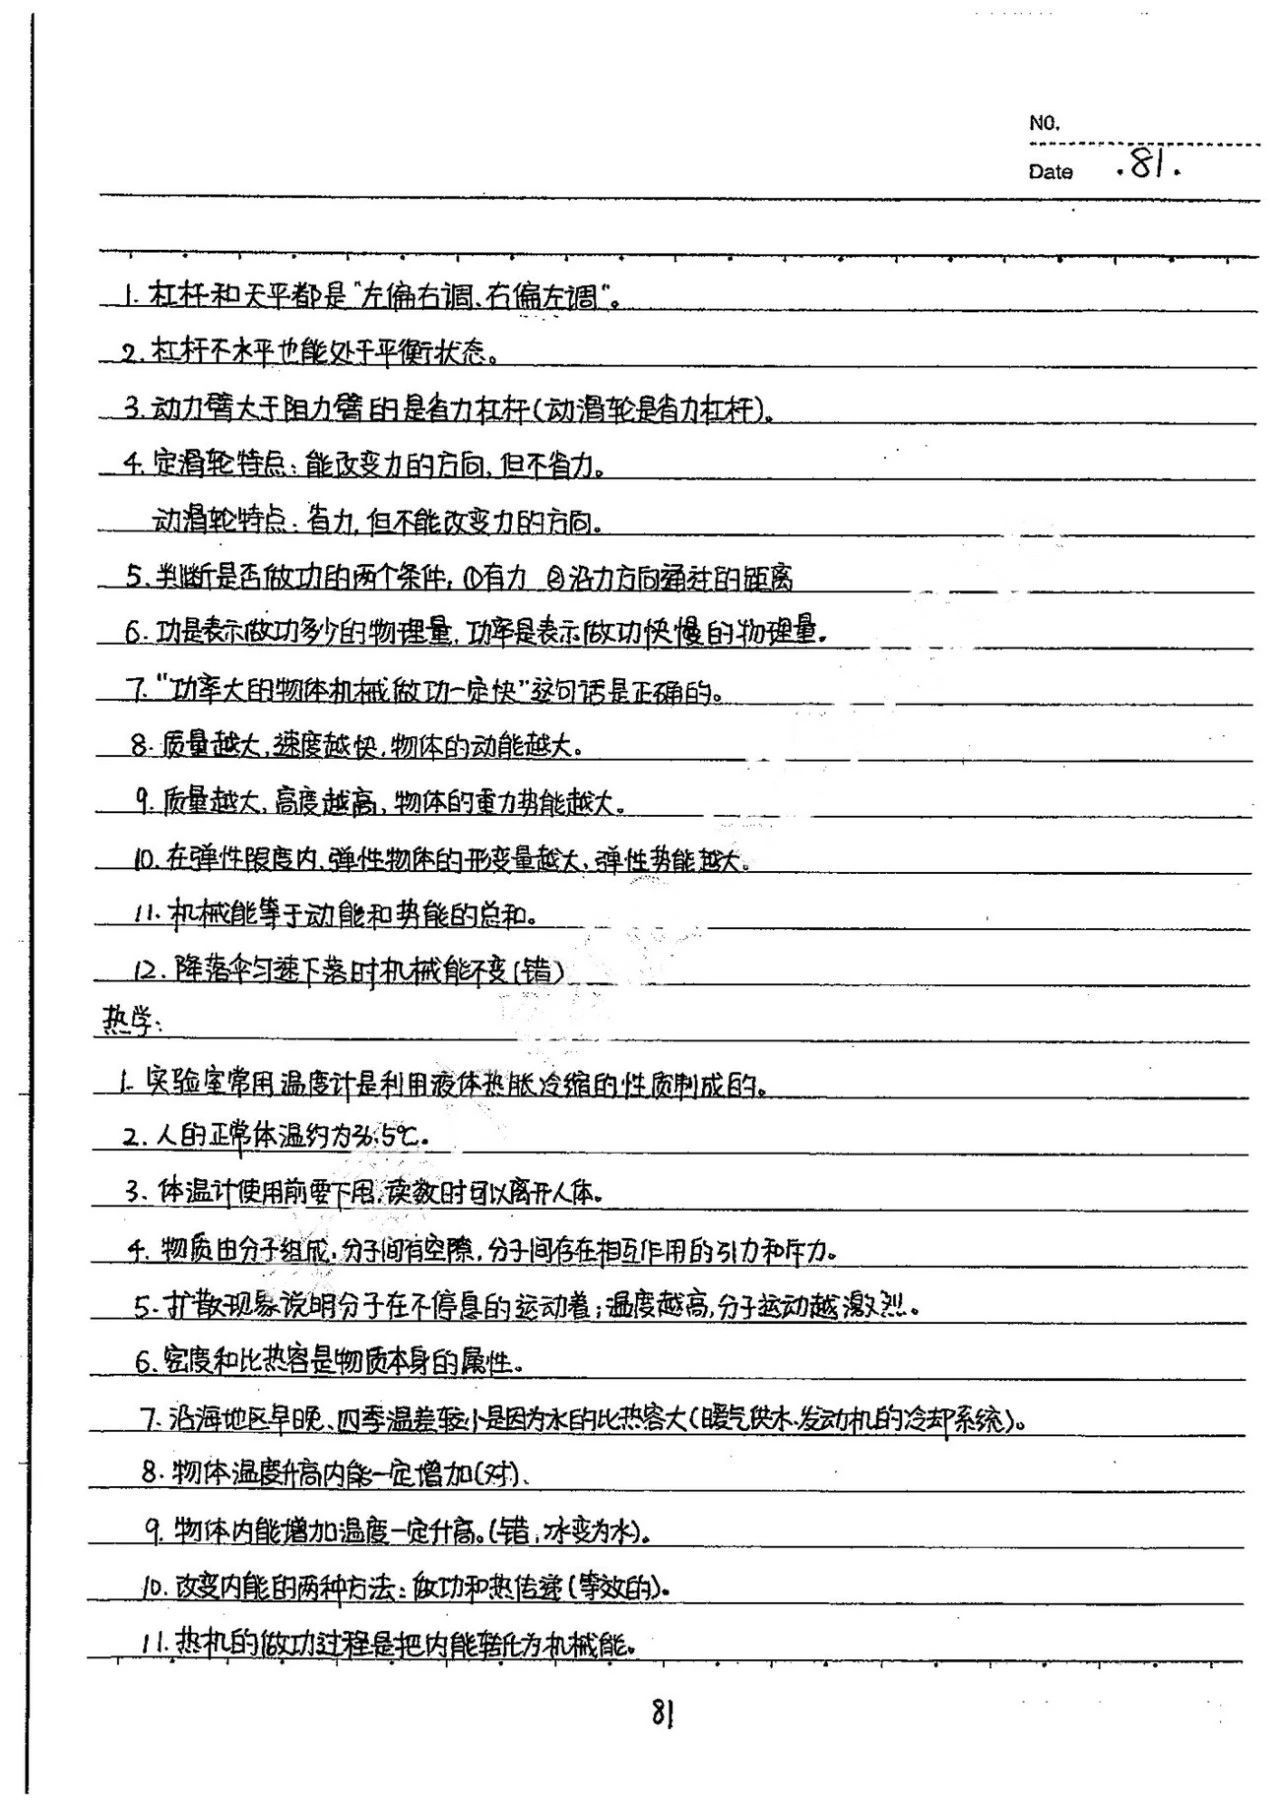 NO.
Date .81.
1. 杠杆和天平都是“左偏右调、右偏左调”。
2. 杠杆不水平也能处于平衡状态。
3. 动力臂大于阻力臂的是省力杠杆(动滑轮是省力杠杆)。
4. 定滑轮特点:能改变力的方向,但不省力。
动滑轮特点:省力,但不能改变力的方向。
5. 判断是否做功的两个条件,①有力 ②沿力方向通过的距离
6. 功是表示做功多少的物理量,功率是表示做功快慢的物理量.
7. “功率大的物体机械做功一定快”这句话是正确的。
8. 质量越大,速度越快,物体的动能越大。
9. 质量越大,高度越高,物体的重力势能越大。
10. 在弹性限度内,弹性物体的形变量越大,弹性势能越大。
11. 机械能等于动能和势能的总和。
12. 降落伞匀速下落时机械能不变(错)
热学:
1. 实验室常用温度计是利用液体热胀冷缩的性质制成的。
2. 人的正常体温约为36.5℃。
3. 体温计使用前要下甩,读数时可以离开人体。
4. 物质由分子组成,分子间有空隙,分子间存在相互作用的引力和斥力。
5. 扩散现象说明分子在不停息的运动着;温度越高,分子运动越激烈。
6. 密度和比热容是物质本身的属性。
7. 沿海地区早晚、四季温差较小是因为水的比热容大(暖气供水、发动机的冷却系统)。
8. 物体温度升高内能一定增加(对)、
9. 物体内能增加温度一定升高。(错,冰变为水)。
10. 改变内能的两种方法:做功和热传递(等效的)。
11. 热机的做功过程是把内能转化为机械能。
81